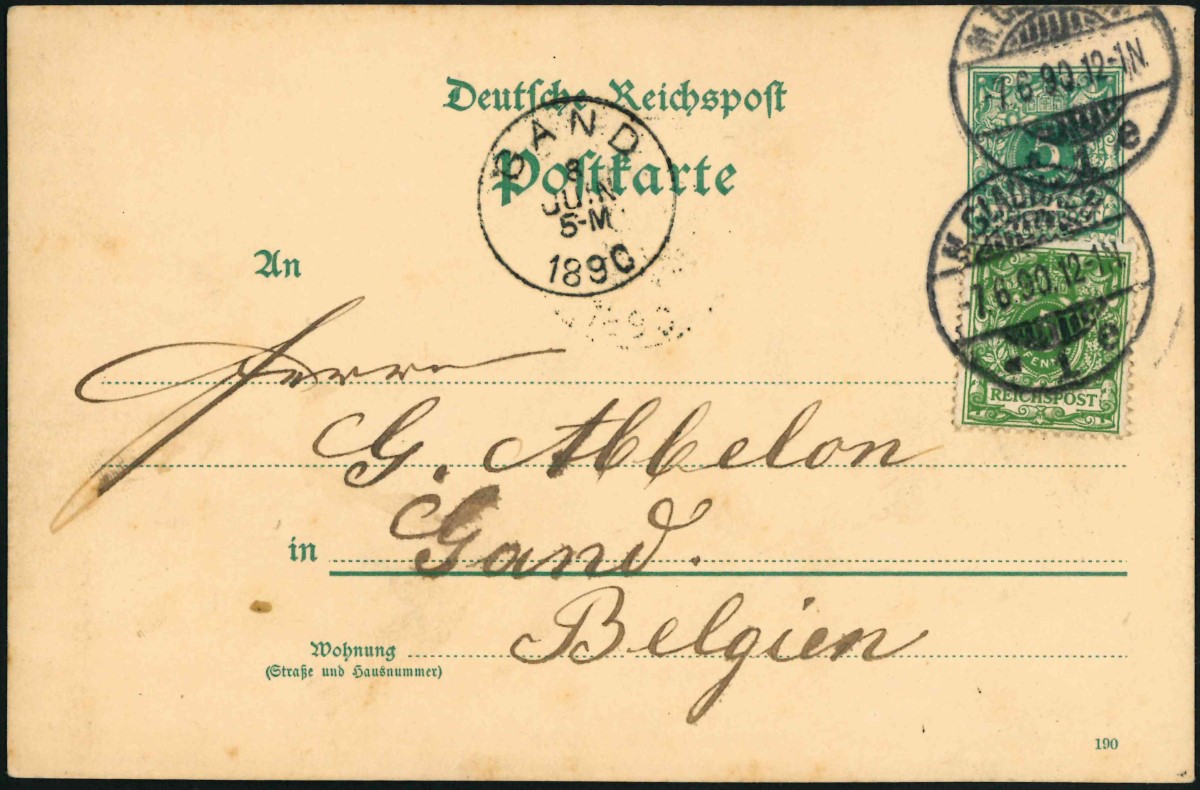 Deutsche Reichspost
Postkarte
GAND
8
JUIN
5-M
1890
M.G
7.6.90.12-1N.
1 e
5
REICHSPOST
M.GLADBACH
7.6.90.12-1N.
* 1 e
PFENNIG
REICHSPOST
An
Herrn
G. Abbelon
in Gand.
Belgien
Wohnung
(Straße und Hausnummer)
190